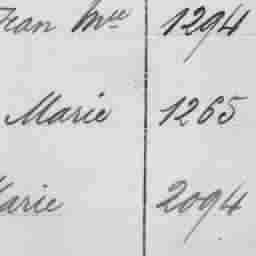 Jean Mce 1294
Marie 1265
Marie 2094